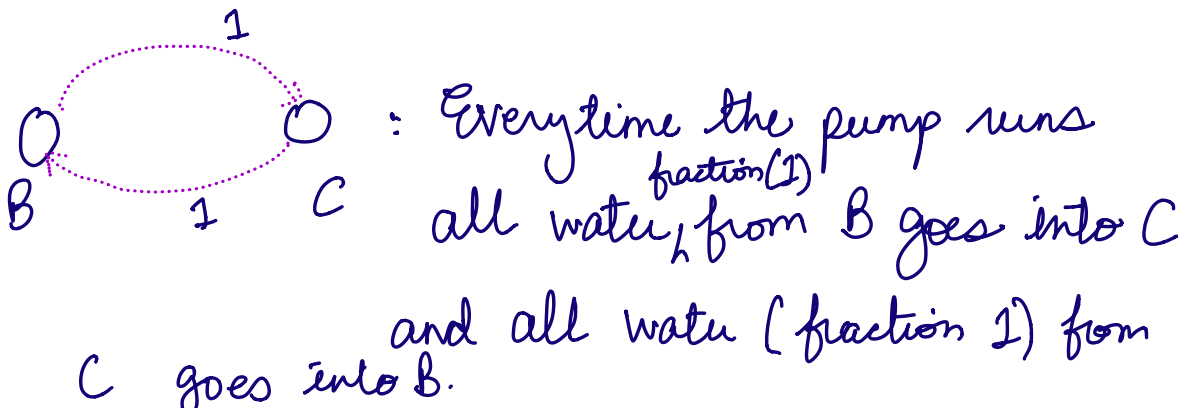 1
B
1
C
: Everytime the pump runs
all water, fraction(1) from B goes into C
and all water (fraction 1) from
C goes into B.